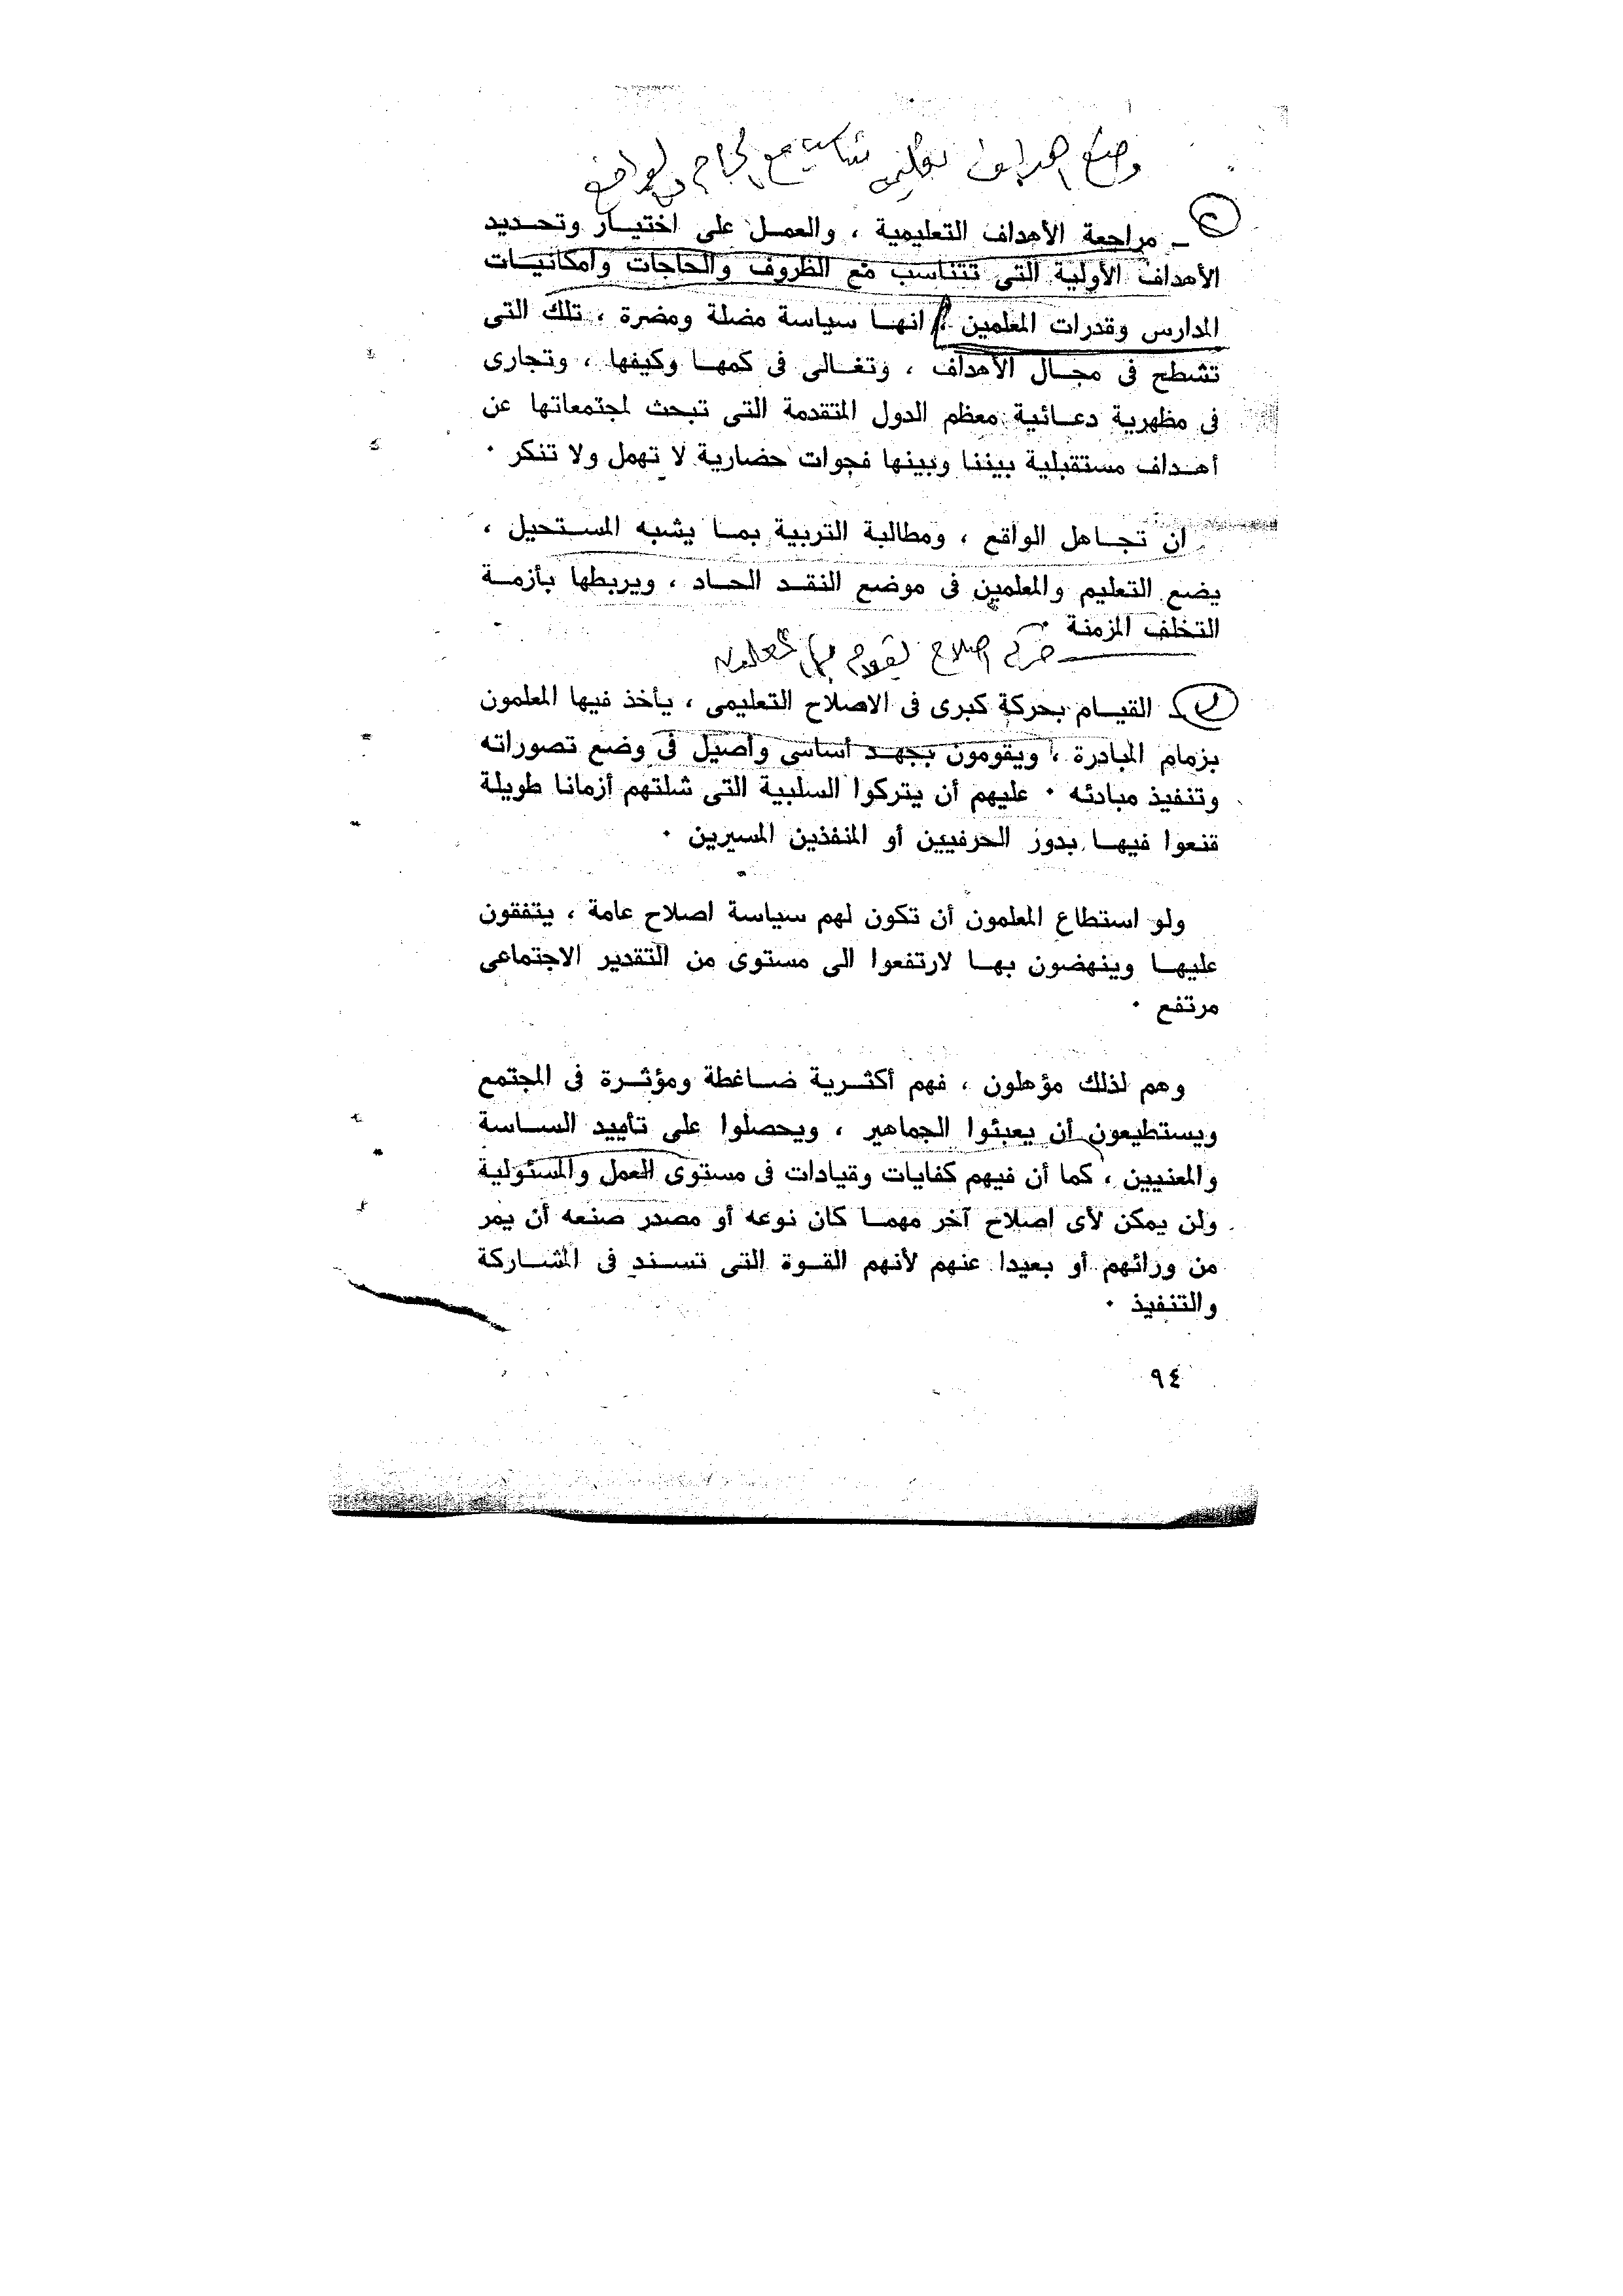 وضع اهداف تعليمية تتناسب مع
ـ مراجعة الأهداف التعليمية ، والعمل على اختيار وتحديد
الأهداف الأولية التى تتناسب مع الظروف والحاجات وامكانيات
المدارس وقدرات المعلمين ، انها سياسة مضلة ومضرة ، تلك التى
تشطح فى مجال الأهداف ، وتغالى فى كمها وكيفها ، وتجارى
فى مظهرية دعائية معظم الدول المتقدمة التى تبحث لمجتمعاتها عن
أهداف مستقبلية بيننا وبينها فجوات حضارية لا تهمل ولا تنكر ٠
ان تجاهل الواقع ، ومطالبة التربية بما يشبه المستحيل ،
يضع التعليم والمعلمين فى موضع النقد الحاد ، ويربطها بأزمة
التخلف المزمنة ٠
اصلاح يقوم
ـ القيام بحركة كبرى فى الاصلاح التعليمى ، يأخذ فيها المعلمون
بزمام المبادرة ، ويقومون بجهد أساسى وأصيل فى وضع تصوراته
وتنفيذ مبادئه ٠ عليهم أن يتركوا السلبية التى شلتهم أزمانا طويلة
قنعوا فيها بدور الحرفيين أو المنفذين المسيرين ٠
ولو استطاع المعلمون أن تكون لهم سياسة اصلاح عامة ، يتفقون
عليها وينهضون بها لارتفعوا الى مستوى من التقدير الاجتماعى
مرتفع ٠
وهم لذلك مؤهلون ، فهم أكثرية ضاغطة ومؤثرة فى المجتمع
ويستطيعون أن يعبئوا الجماهير ، ويحصلوا على تأييد الساسة
والمعنيين ، كما أن فيهم كفايات وقيادات فى مستوى العمل والمسئولية
ولن يمكن لأى اصلاح آخر مهما كان نوعه أو مصدر صنعه أن يمر
من ورائهم أو بعيدا عنهم لأنهم القوة التى تسند فى المشاركة
والتنفيذ ٠
٩٤